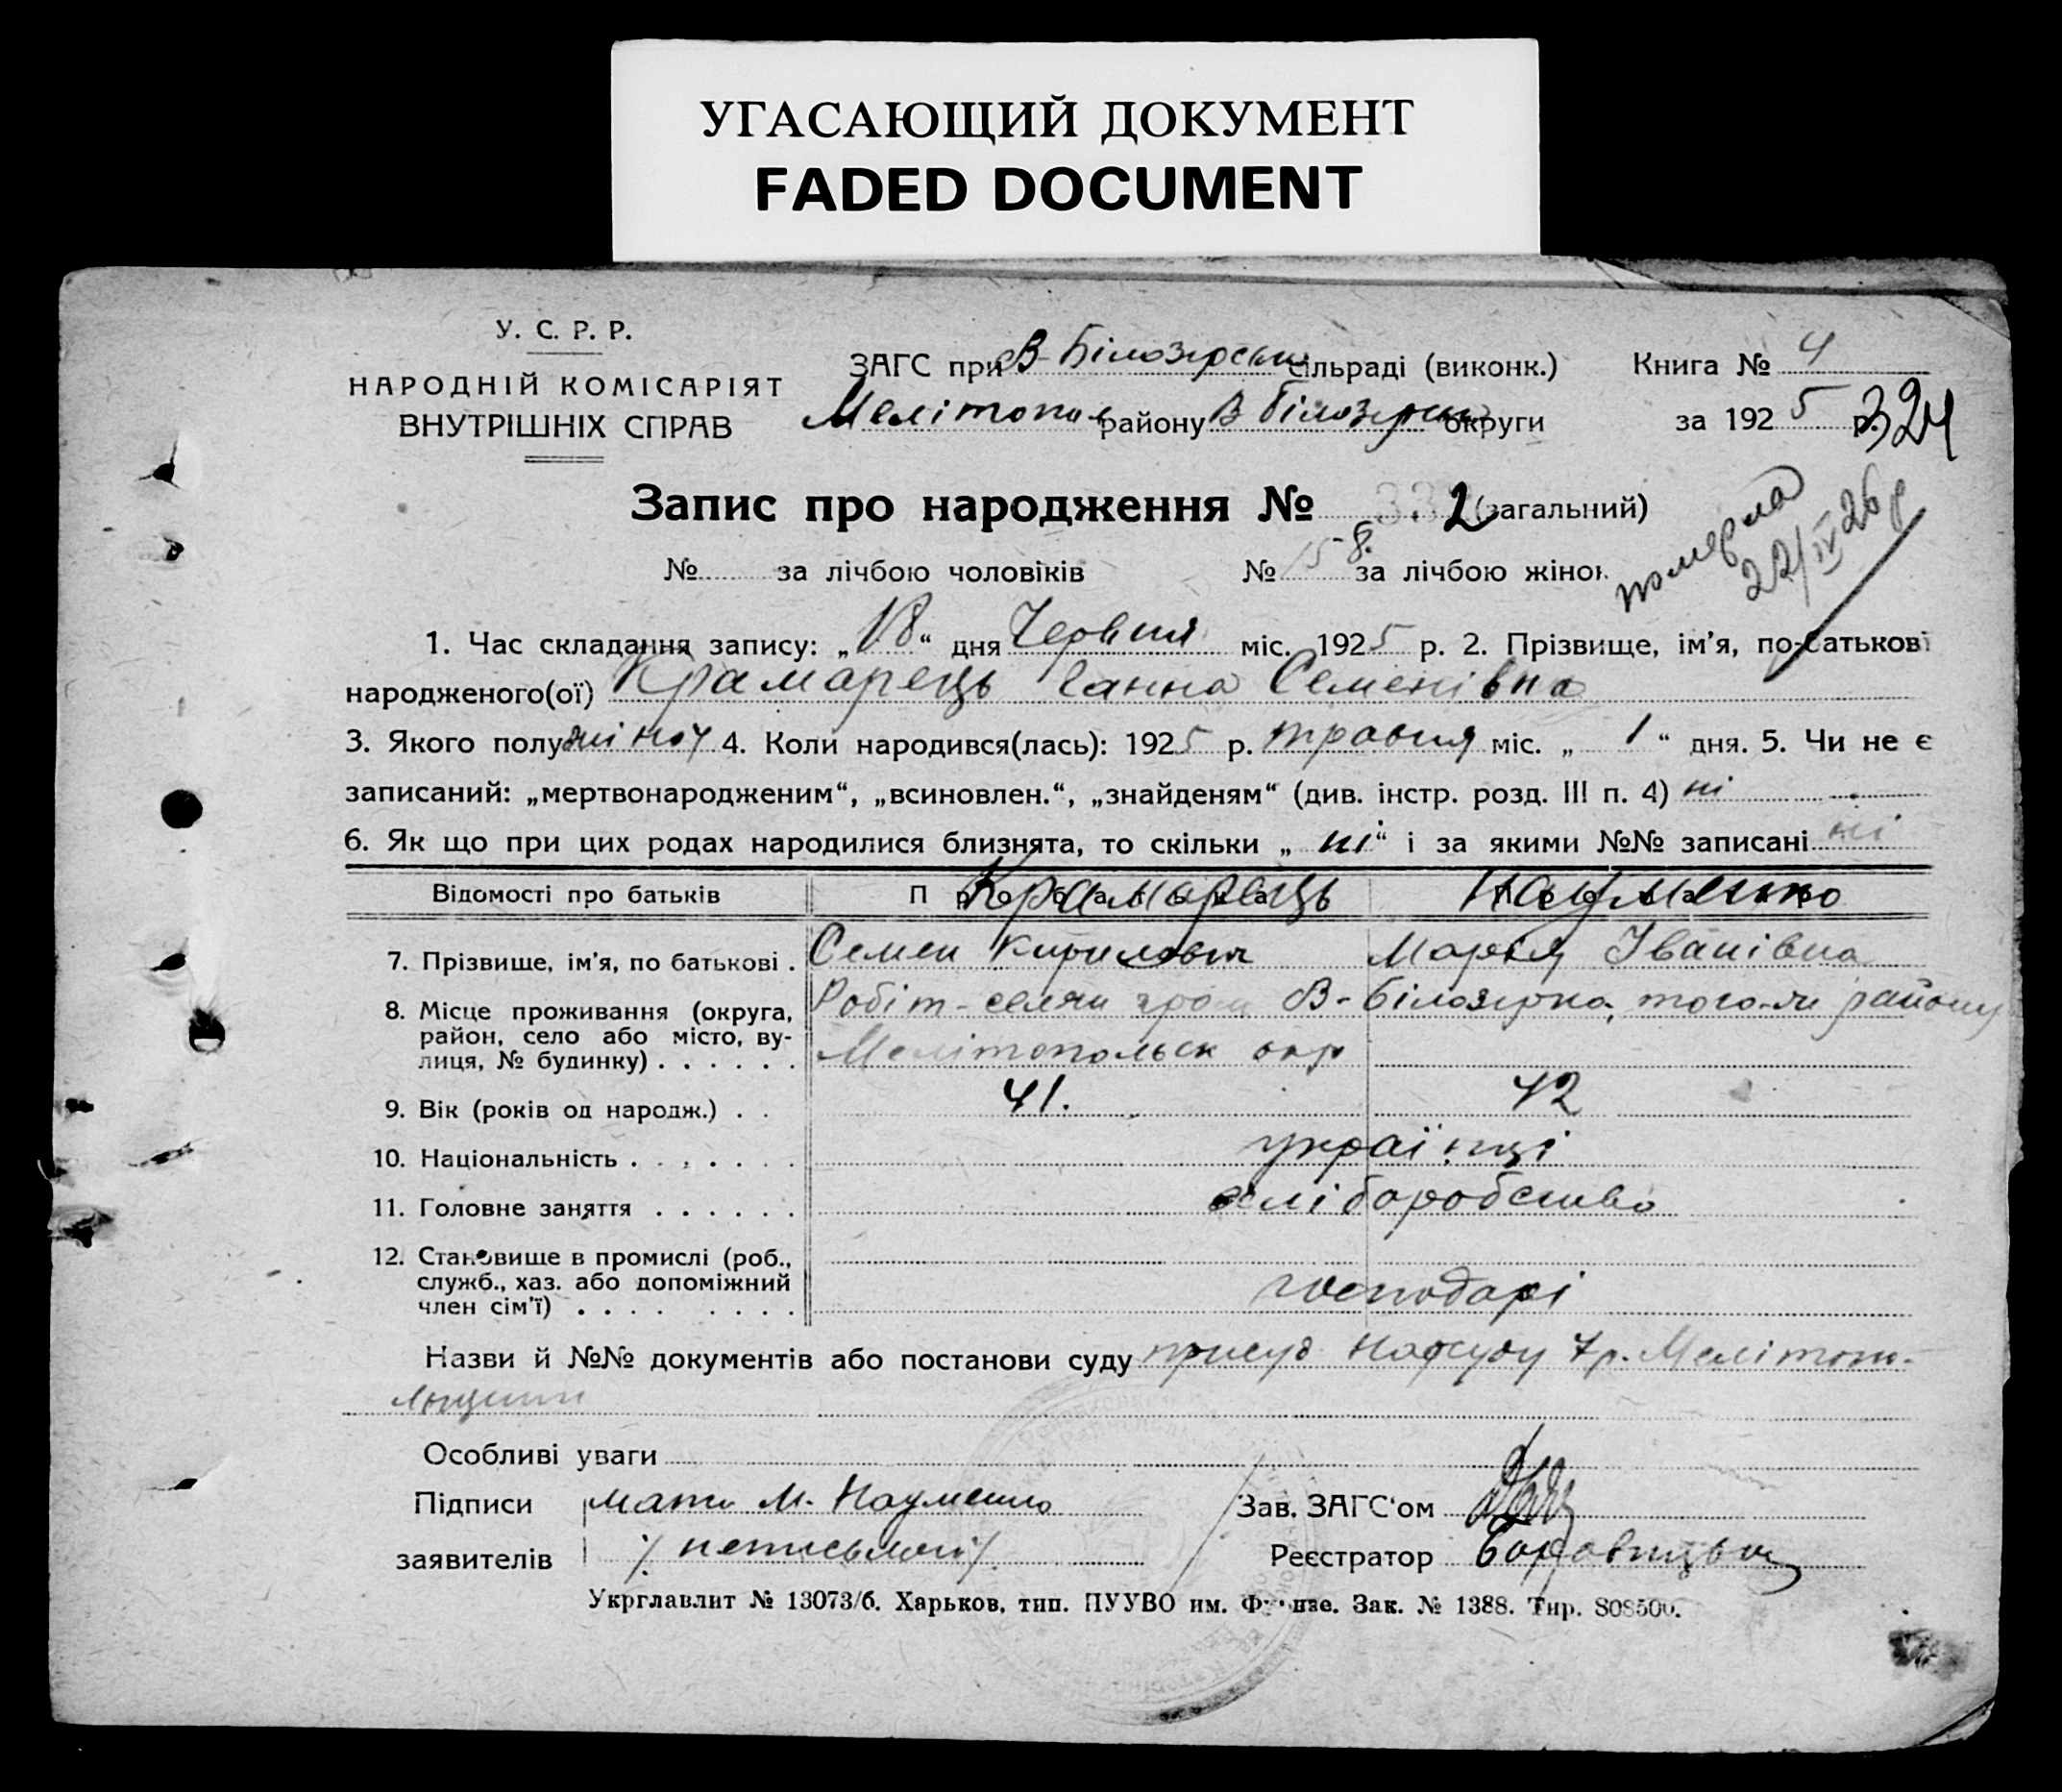 УГАСАЮЩИЙ ДОКУМЕНТ
FADED DOCUMENT
У. С. Р. Р.
НАРОДНІЙ КОМІСАРІЯТ
ВНУТРІШНІХ СПРАВ
ЗАГС при В-Білозірськ сільраді (виконк.)
Мелітопол району В Білозірськ округи
Книга № 4
за 1925 р. 324
Запис про народження № 332 (загальний)
№ за лічбою чоловіків № 158. за лічбою жінок
померла
22/IV 26 р
1. Час складання запису: „18“ дня Червня міс. 1925 р. 2. Прізвище, ім'я, по-батькові
народженого(ої) Крамарець Ганна Семенівна
3. Якого полу жіноч 4. Коли народився(лась): 1925 р. травня міс. „ 1 “ дня. 5. Чи не є
записаний: „мертвонародженим“, „всиновлен.“, „знайденям“ (див. інстр. розд. III п. 4) ні
6. Як що при цих родах народилися близнята, то скільки „ ні“ і за якими №№ записані ні
Відомості про батьків Крамарець Науменко
7. Прізвище, ім'я, по батькові . Семен Кирилович Марія Іванівна
8. Місце проживання (округа, район, село або місто, вулиця, № будинку) . . . . . . Робіт-селян гром В-Білозірка, того-ж району
Мелітопольск окр
9. Вік (років од народж.) . . 41. 42
10. Національність . . . . . . . українці
11. Головне заняття . . . . . . хліборобство
12. Становище в промислі (роб., служб., хаз. або допоміжний член сім'ї) . . . . . . . . господарі
Назви й №№ документів або постанови суду присуд Нарсуду 7 р. Мелітопо-
льщини
Особливі уваги
Підписи мати М. Науменко Зав. ЗАГС'ом
заявителів / неписьмен / Реєстратор
Укрглавлит № 13073/б. Харьков, тип. ПУУВО им. Фрунзе. Зак. № 1388. Тир. 808500.